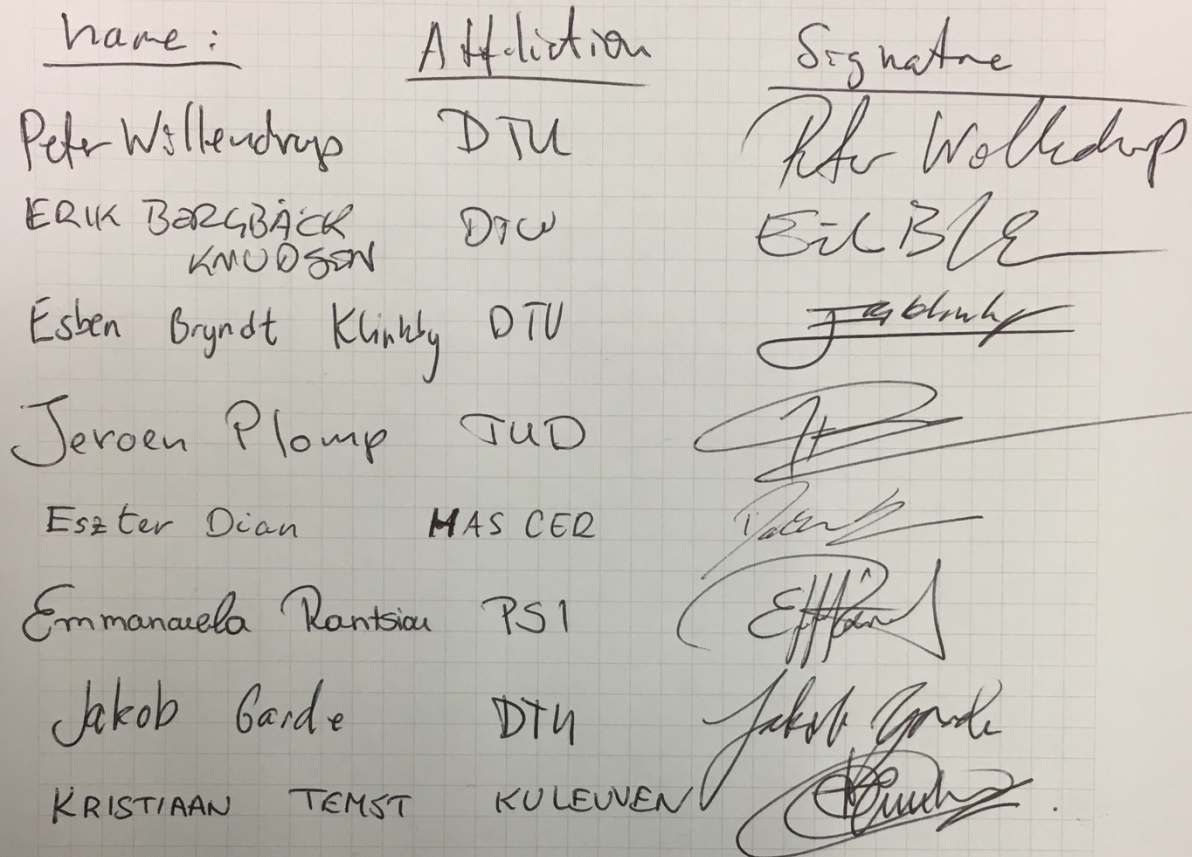 name: Affiliation Signature
Peter Willendrup DTU Peter Willendrup
ERIK BERGBÄCK DTU
KNUDSEN
Esben Bryndt Klinkby DTU
Jeroen Plomp TUD
Eszter Dian MAS CER
Emmanouela Rantsiou PSI
Jakob Garde DTU Jakob Garde
KRISTIAAN TEMST KULEUVEN